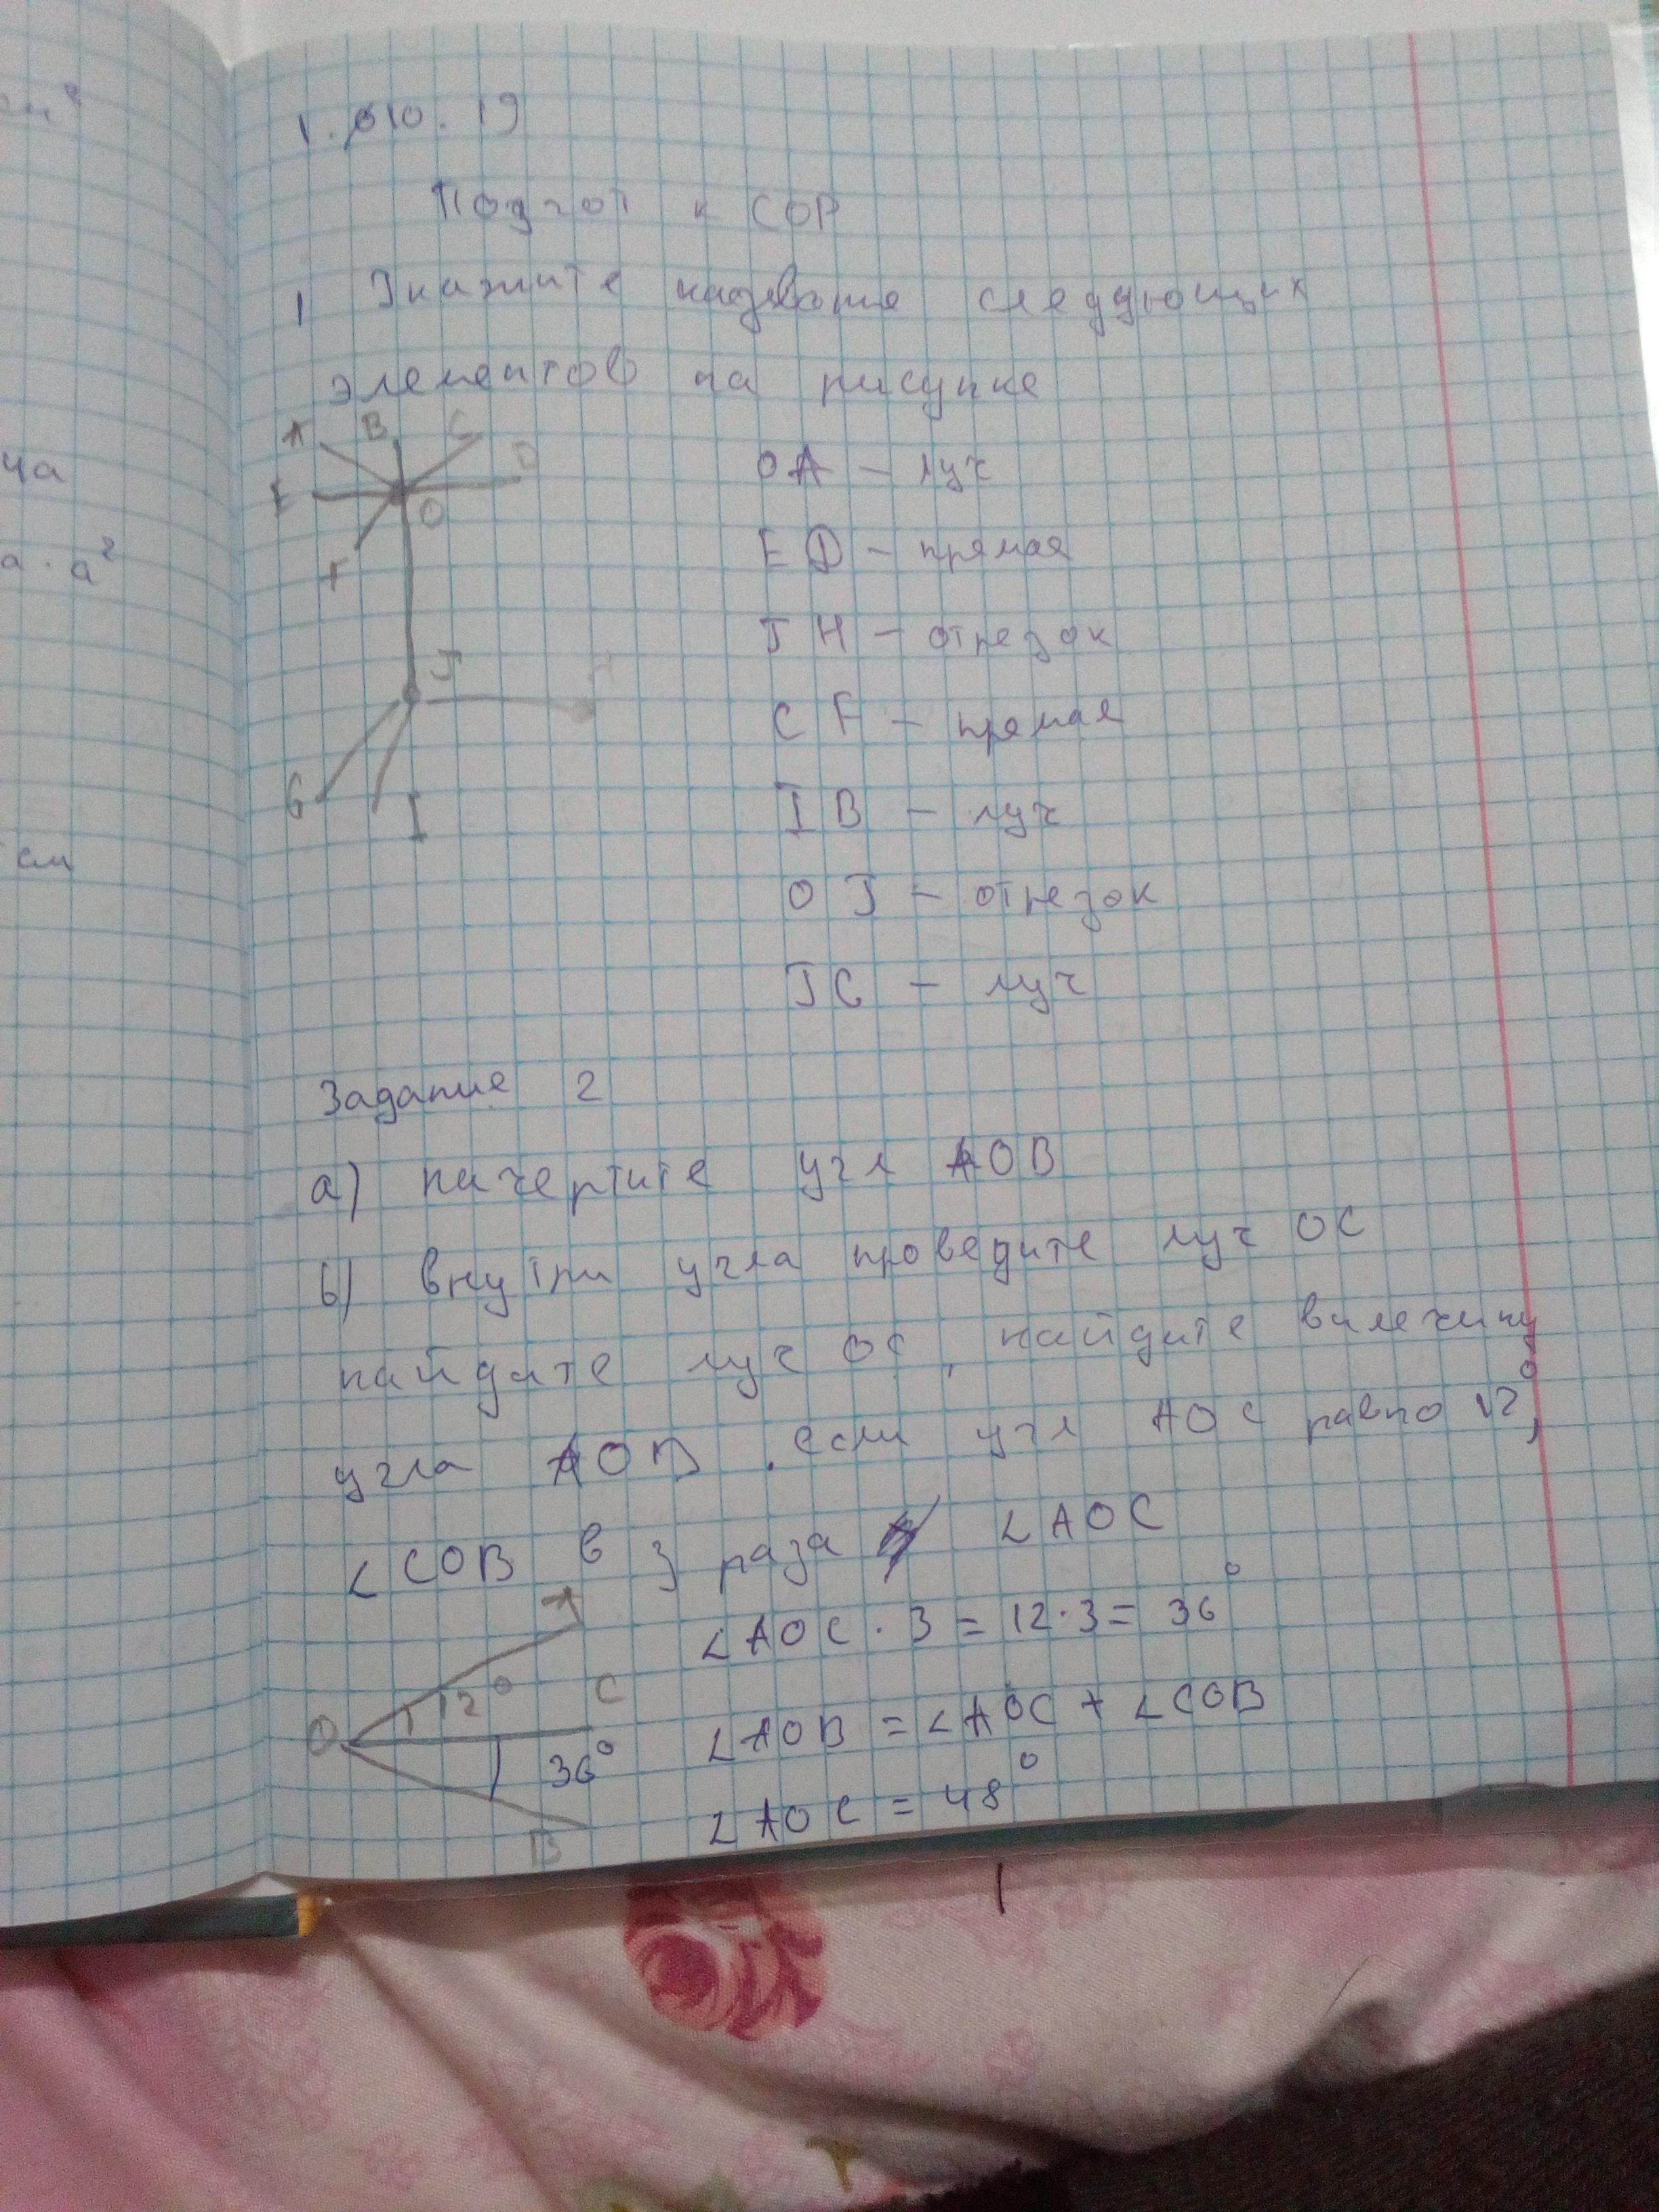 см²
ча
а · а²
см
1.010.19
Подгот к СОР
1 Укажите название следующих
элементов на рисунке
A B C
E D
O
F
J H
G I
OA – луч
ED – прямая
JH – отрезок
CF – прямая
IB – луч
OJ – отрезок
JG – луч
Задание 2
а) начертите угл AOB
b) внутри угла проведите луч OC
найдите луч OC, найдите виличину
угла AOB . если угл AOC равно 12°,
∠COB в 3 раза ∠AOC
∠AOC · 3 = 12·3 = 36°
∠AOB = ∠AOC + ∠COB
∠AOC = 48°
A
O 12° C
36°
B